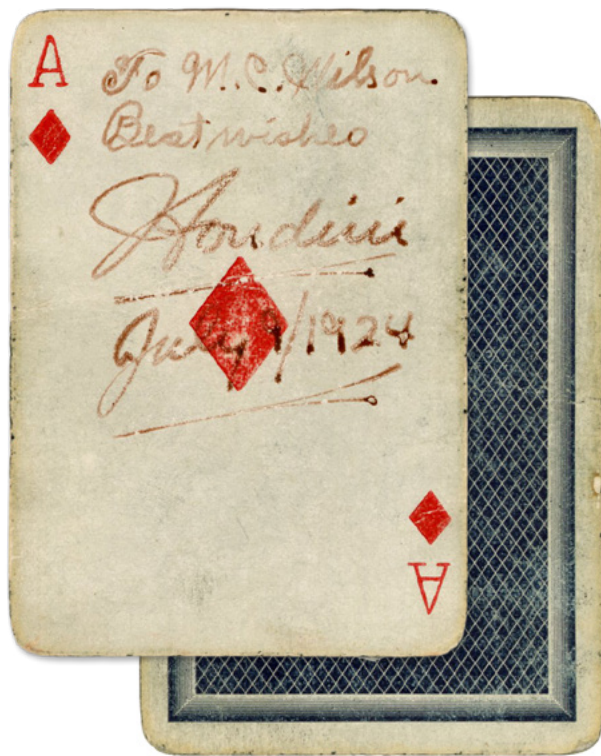 A
To M.C. Wilson.
Best wishes
Houdini
July 9/1924
A